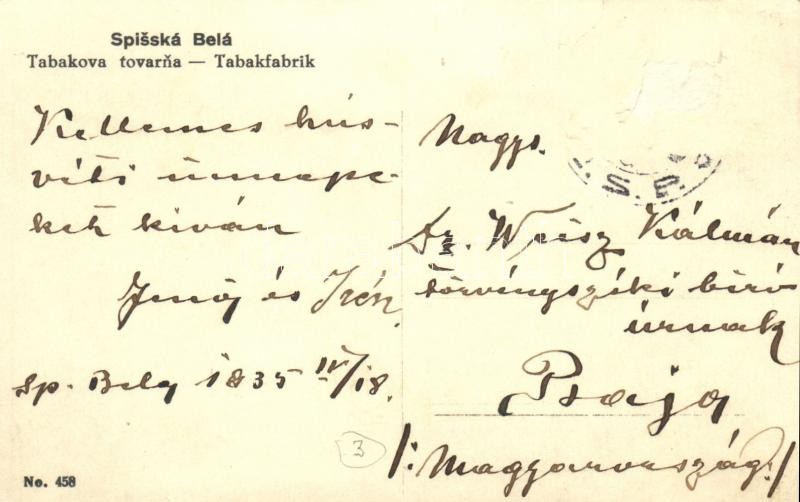 Spišská Belá
Tabakova tovarňa — Tabakfabrik
Kellemes hús-
véti ünnepe-
ket kíván
Jenő és Irén.
Sp. Bela 1935 IV/18.
Nagys.
Dr. Weisz Kálmán
törvényszéki biró
úrnak
Baja
/: Magyarország :/
3
No. 458